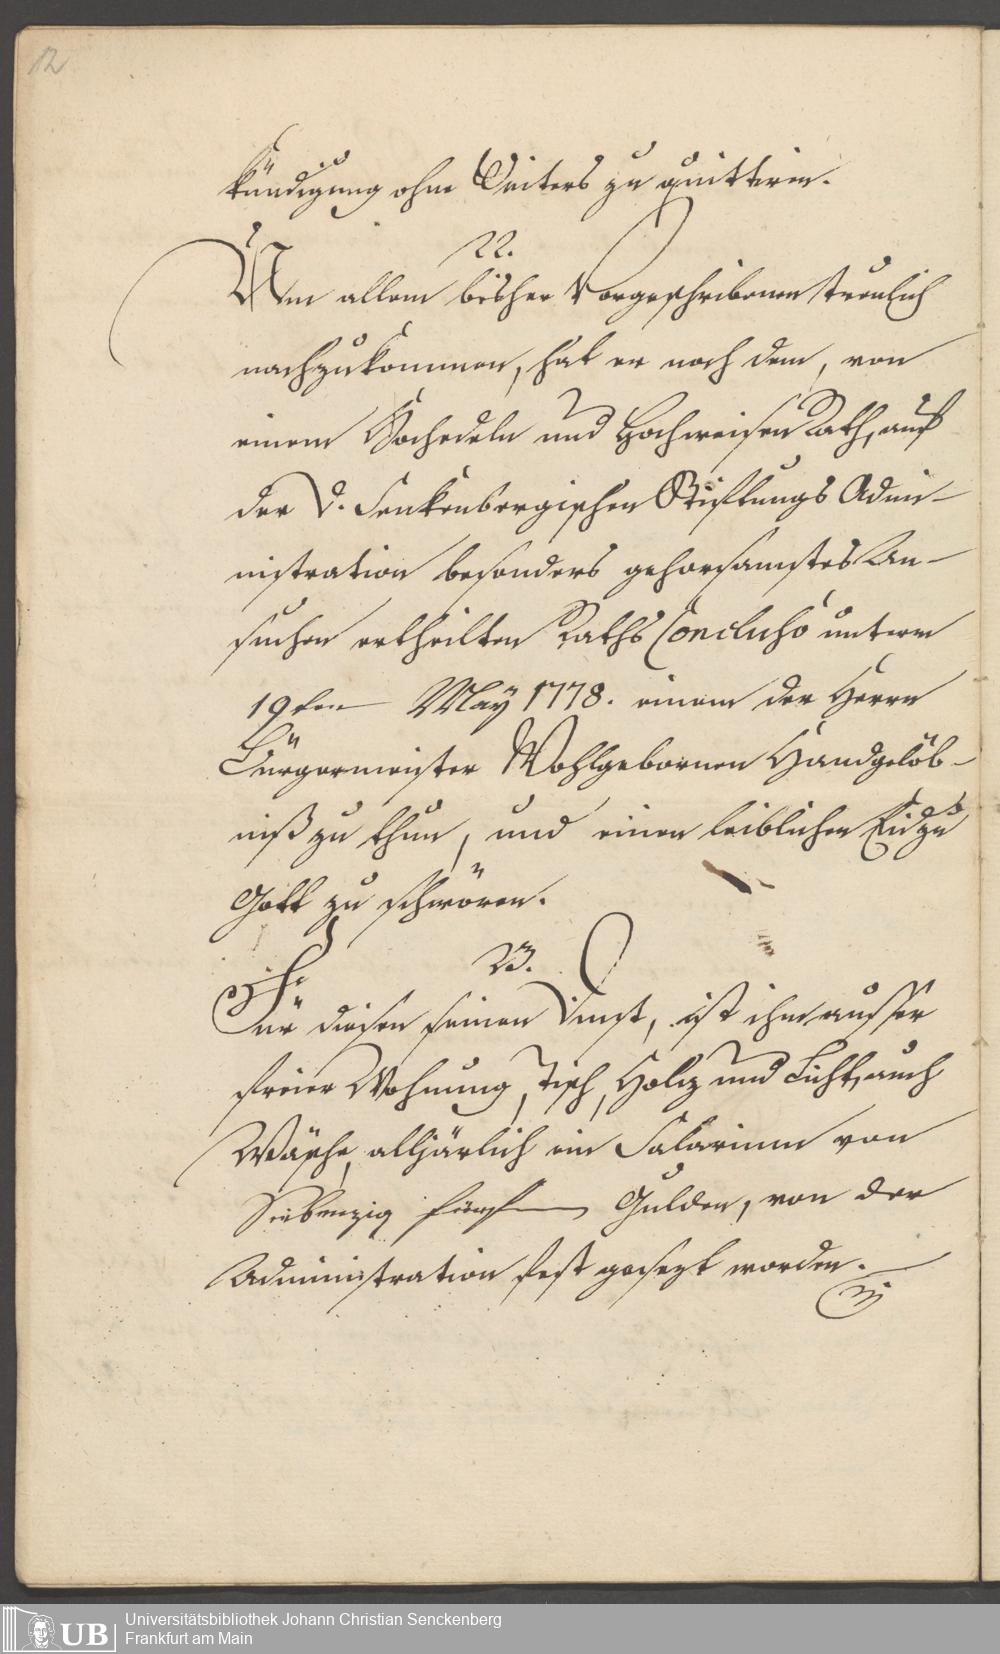 12
kündigung ohne Weiters zu quittiren.
22.
Um allem bisher Vorgeschribenen treulich
nachzukommen, hat er nach dem, von
einem Hochedeln und Hochweisen Rath, auf
der D. Senkenbergischen Stiftungs Admi-
nistration besonders gehorsamstes An-
suchen ertheilten Raths Concluso unterm
19ten May 1778. einem der Herrn
Bürgermeister Wohlgebornen Handgelöb-
niß zu thun, und einen leiblichen Eid zu
Gott zu schwören.
23.
Für diesen seinen Dinst, ist ihm ausser
freier Wohnung, Tisch, Holz und Licht, auch
Wäsche, alljärlich ein Salarium von
Siebenzig fünf Gulden, von der
Administration fest gesezt worden.
UB
Universitätsbibliothek Johann Christian Senckenberg
Frankfurt am Main